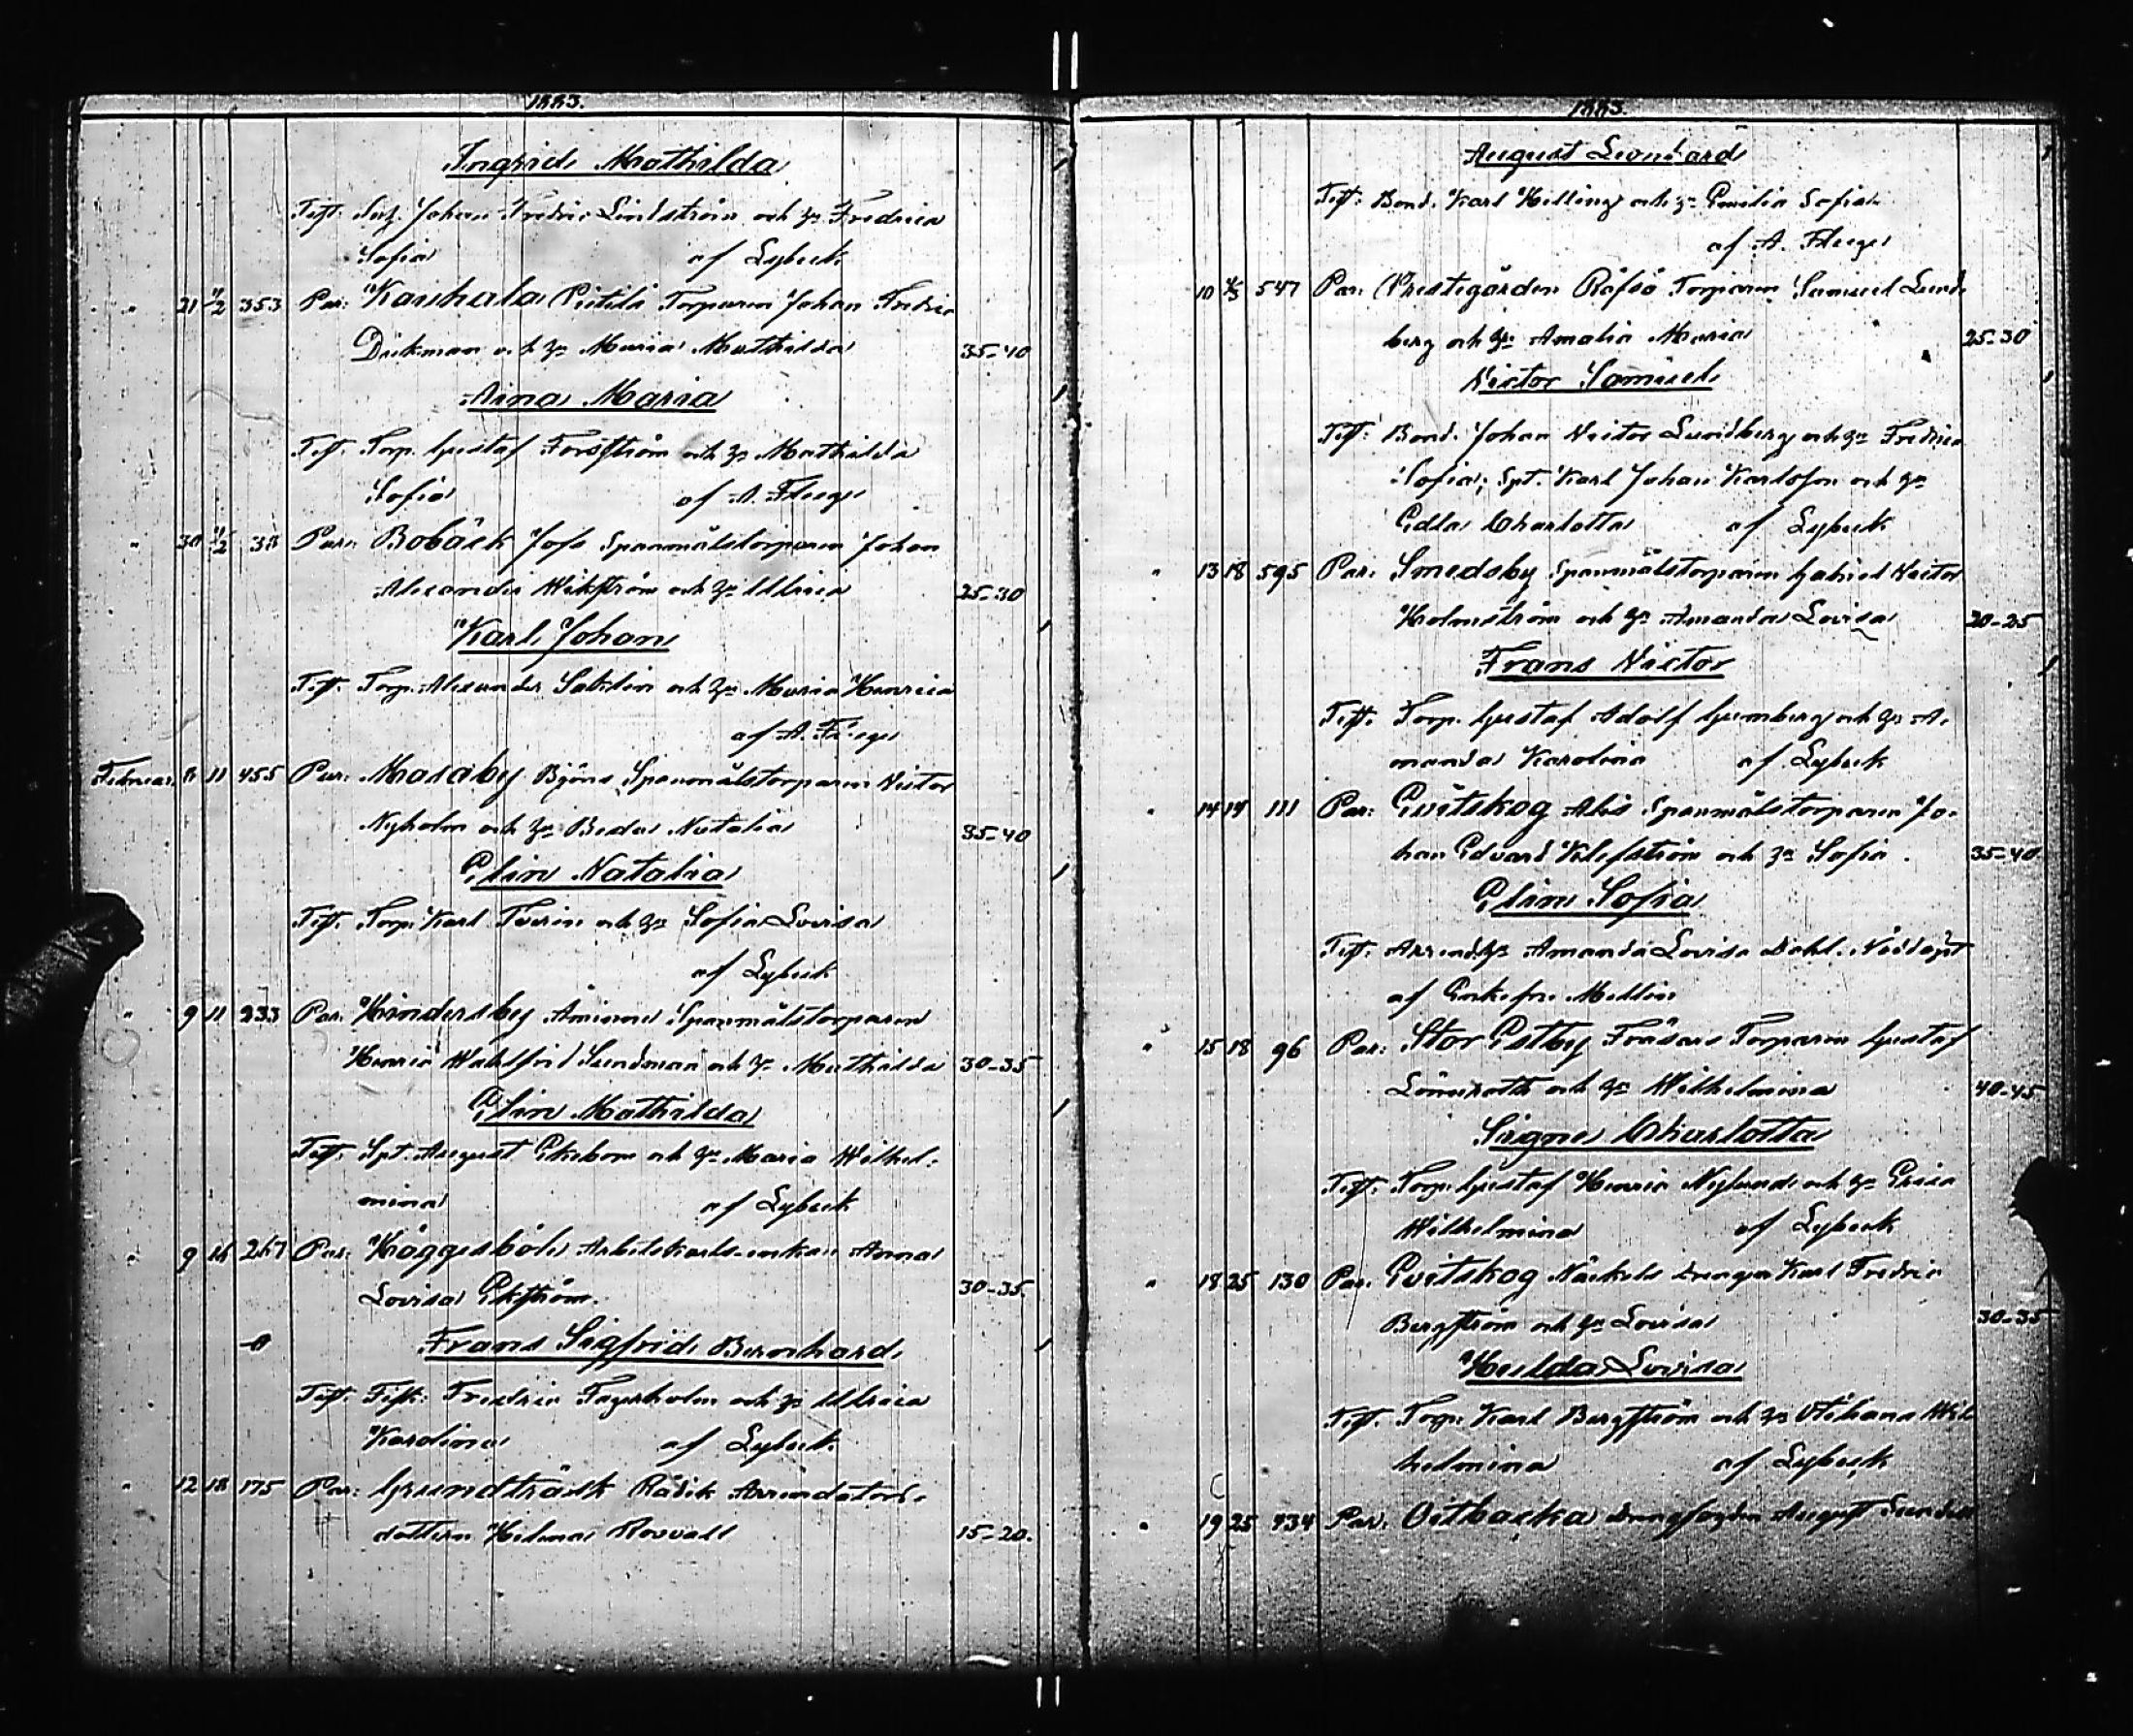 1883.
Ingrid Mathilda
Test. Johan Fredric Lindström och h. Fredrica
Sofia af Lybeck
" " 31 11/2 353 Par: Karhala Torparen Johan Fredric
Dickman och h. Maria Mathilda 35-40
Aina Maria
Test. Torp. Gustaf Forsström och h. Mathilda
Sofia af A. Fleege
" 30 11/2 38 Par: Bobäck Jofs Spanmålstorparen Johan
Alexander Wikström och h. Ulrica 25-30
Karl Johan
Test. Torp. Alexander och h. Maria Henrica
af A. Fleege
Februari 8 11 455 Par: Masaby Björns Spanmålstorparen Victor
Nyholm och h. Beda Natalia 35-40
Elin Natalia
Test. Torp. Karl och h. Sofia Lovisa
af Lybeck
" 9 11 233 Par: Hindersby Spanmålstorparen
Henric Wahlfrid Sundman och h. Mathilda 30-35
Elin Mathilda
Test. Spt. August Ekebom och h. Maria Wilhel-
mina af Lybeck
" 9 16 267 Par: Wäggesböle Arbetskarls-enkan Anna
Lovisa Ekström. 30-35.
Frans Sigfrid Bernhard
Test. Fredric Fagerholm och h. Ulrica
Karolina af Lybeck
" 12 18 175 Par: Grundträsk Rådik Arrendators-
dottern Hilma Rosvall 15-20.
1883.
August Leonhard
Test. Bond. Karl Helling och h. Emilia Sofia
af A. Fleege
10 547 Par: Prestgården Räfsö Torparen Samuel Lund-
berg och h. Amalia Maria 25-30
Victor Samuel
Test: Bond. Johan Victor Lundberg och h. Fredrica
Sofia; Spt. Karl Johan Karlsson och h.
Edla Charlotta af Lybeck
" 13 18 595 Par: Smedsby Spanmålstorparen Gabriel Victor
Holmström och h. Amanda Lovisa 20-25
Frans Victor
Test. Torp. Gustaf Adolf Grönberg och h. A-
manda Karolina af Lybeck
" 14 14 111 Par: Evitskog Alis Spanmålstorparen Jo-
han Edvard Klefström och h. Sofia 35-40
Elin Sofia
Test: Amanda Lovisa Dahl. Nöddöpt
af Enkefru Mellin
" 15 18 96 Par: Stor Estby Fräsars Torparen Gustaf
Lönnroth och h. Wilhelmina 40-45
Signe Charlotta
Test: Torp. Gustaf Henric Nylund och h. Erica
Wilhelmina af Lybeck
" 18 25 130 Par. Evitskog Näckels drengen Karl Fredric
Bergström och h. Lovisa 30-35
Hulda Lovisa
Test. Torp. Karl Bergström och h. Wil-
helmina af Lybeck
" 19 25 434 Par: Oitbacka drengfogden August Sundell